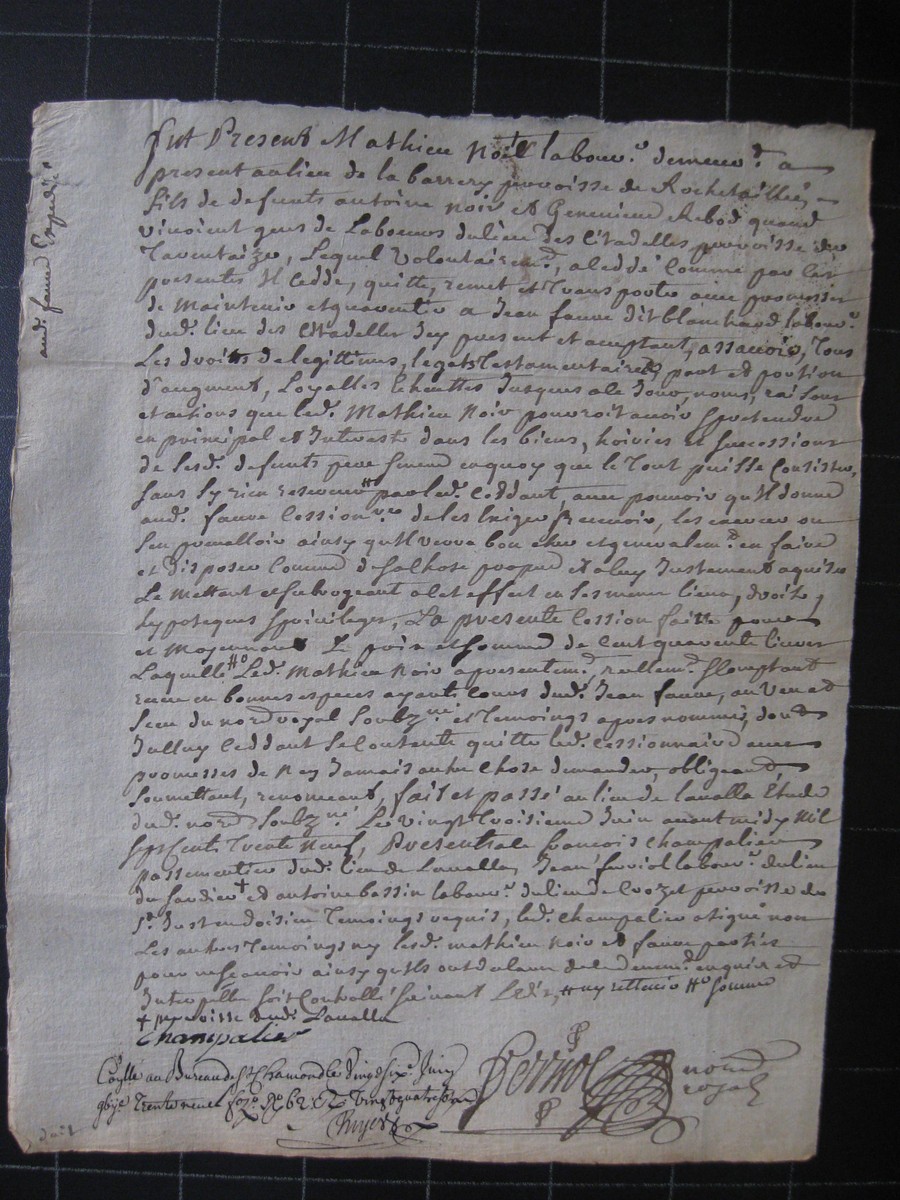 Fut Present Mathieu Noir labour.r demeur.t a
present au lieu de la barrery parroisse de Rochetaillée,
fils de defunts antoine noir et Genevieve Rebod quand
vivoient gens de Labeurs du lieu des Citadelles parroisse de
Tarentaize, Lequel volontairem.t, a ceddé comme par les
presentes Il cedde, quitte, remet et transporte avec promesse
de maintenir et garentir a Jean faure dit blanchard labour.r
dud. lieu des Citadelles Icy present et acceptant, assavoir, Tous
Les droits de legittimes, legats Testamentaires, part et portion
d'augment, Loyalles Echeuttes Jusques a ce Jour, noms, raisons
et actions que led. Mathieu Noir pourroit avoir & pretendre
en principal et Interests dans les biens, hoiries et successions
de sesd. defunts pere & mere en quoy que le Tout puisse Consister,
sans Sy rien reserver # par led. Ceddant, avec pouvoir qu'Il donne
aud. faure Cession.re de les Exiger & recevoir, les exercer ou
s'en prevalloir ainsy qu'Il verra bon etre et generalem.t en faire
et disposer Comme de sa chose propre et a luy Justement aquise
Le mettant et subrogeant a cet effet en ses meme lieux, droits,
hypoteques & privileges, La presente Cession faitte pour
et moyennant Le prix et somme de Cent quarente livres
Laquelle #o Led. Mathieu Noir a presentem.t reellem.t & Comptant
receu en bonnes especes ayants Cours dud. Jean faure, au Veu et
Sceu du no.re royal Soubz.né et Temoings apres nommés, dont
Icelluy Ceddant Se Contente quitte led. Cessionnaire avec
promesses de n'en Jamais autre chose demander, obligeant,
Soumettant, renonceant, fait et passé au lieu de Lavalla Etude
dud. no.re Soubz.né Le vingt troisieme Juin avant midy Mil
Sept Cents Trente Neuf, Present sr francois Champalier
passementier dud. lieu de Lavalla, Jean labour.r du lieu
du + et antoine bassin labour.r du lieu de Crozet parroisse de
St. Just en doisieu Temoings requis, led. Champalier a signé non
Les autres Temoings ny lesd. mathieu Noir et faure parties
pour ne scavoir ainsy qu'Ils ont declaré de ce deuem.t enquis et
Interpellé soit Controllé suivant L'edit, # ny retenir #o somme
+ parroisse dud. Lavalla
Champalier
no.re
royal
Con.lle au Bureau de St. Chamond le vingt six.e Juin
Trente neuf vingt quatre sols
aud. faure Expedié